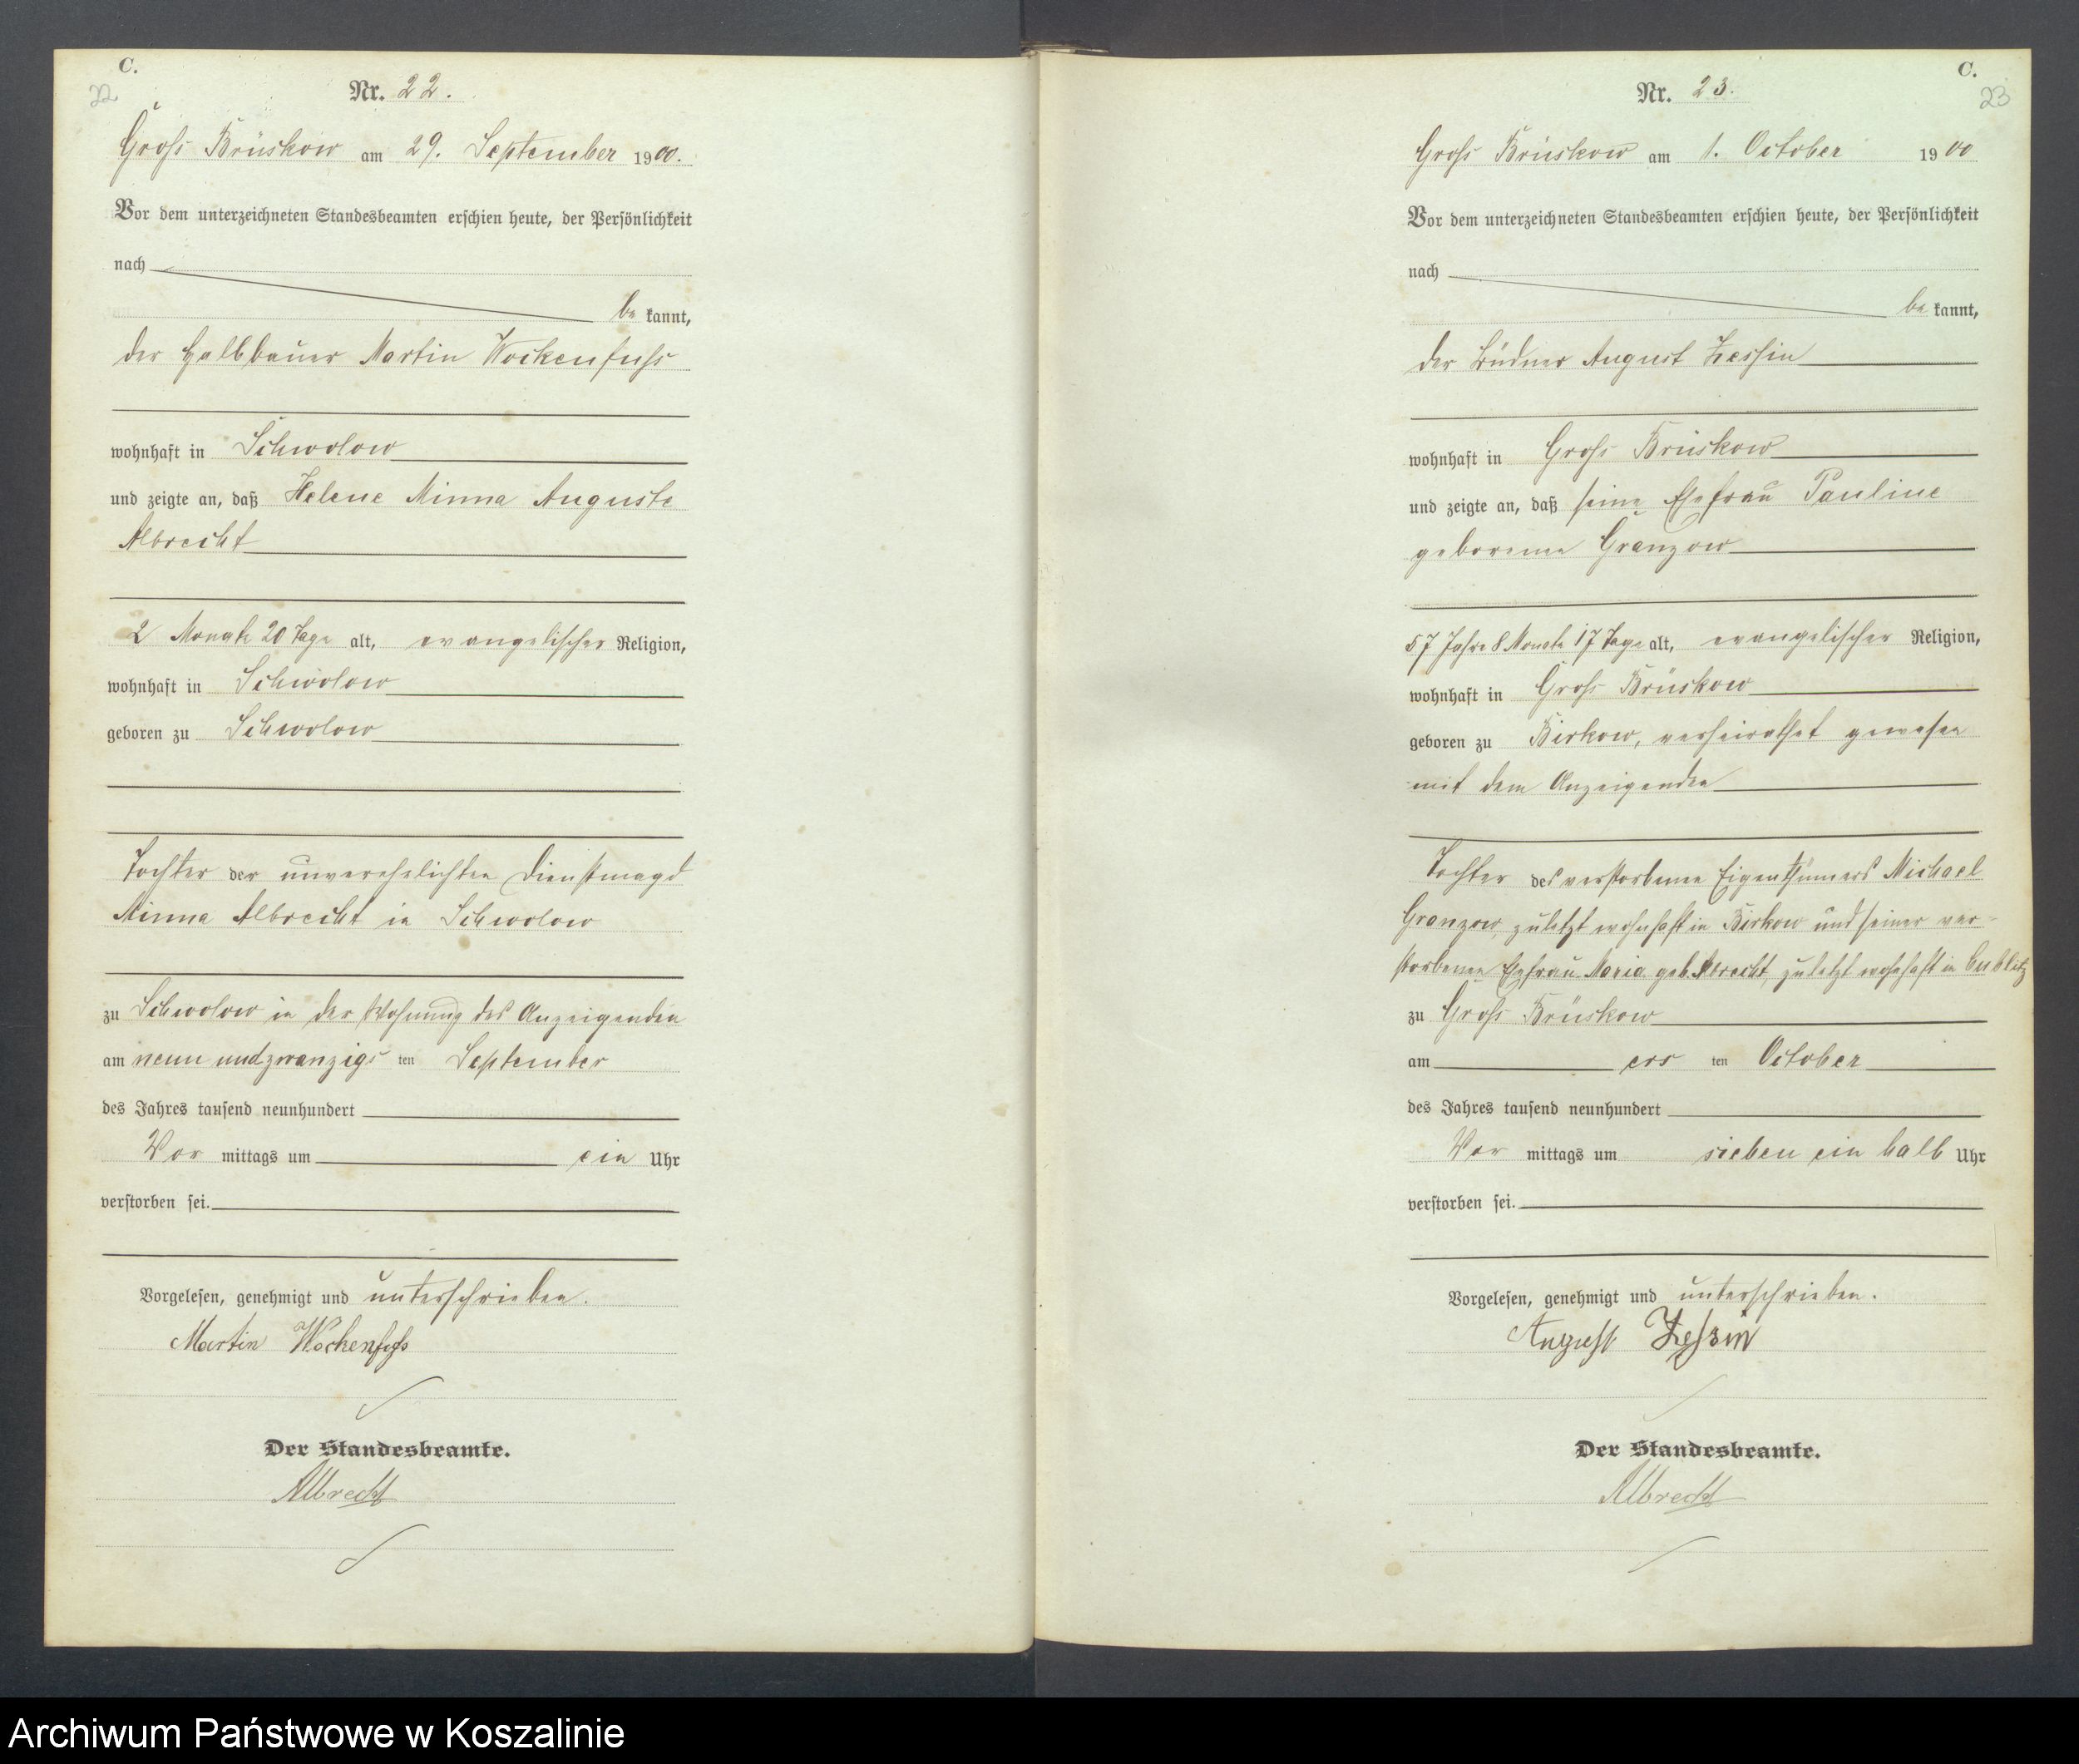 C.
22
Nr. 22.
Groß Brüskow am 29. September 1900.
Vor dem unterzeichneten Standesbeamten erschien heute, der Persönlichkeit
nach
be kannt,
der Halbbauer Martin Wockenfuß
wohnhaft in Schwolow
und zeigte an, daß Helene Minna Auguste
Albrecht
2 Monate 20 Tage alt, evangelischer Religion,
wohnhaft in Schwolow
geboren zu Schwolow
Tochter der unverehelichten Dienstmagd
Minna Albrecht in Schwolow
zu Schwolow in der Wohnung des Anzeigenden
am neun und zwanzigs ten September
des Jahres tausend neunhundert
Vor mittags um ein Uhr
verstorben sei.
Vorgelesen, genehmigt und unterschrieben.
Martin Wockenfuß
Der Standesbeamte.
Albrecht
C.
23
Nr. 23.
Groß Brüskow am 1. October 1900
Vor dem unterzeichneten Standesbeamten erschien heute, der Persönlichkeit
nach
be kannt,
der Büdner August Zessin
wohnhaft in Groß Brüskow
und zeigte an, daß seine Ehefrau Pauline
geborene Granzow
57 Jahre 8 Monate 17 Tage alt, evangelischer Religion,
wohnhaft in Groß Brüskow
geboren zu Birkow, verheirathet gewesen
mit dem Anzeigenden
Tochter des verstorbenen Eigenthümers Michael
Granzow, zuletzt wohnhaft in Birkow und seiner ver-
storbenen Ehefrau Maria geb. Albrecht, zuletzt wohnhaft in Bublitz
zu Groß Brüskow
am ers ten October
des Jahres tausend neunhundert
Vor mittags um sieben ein halb Uhr
verstorben sei.
Vorgelesen, genehmigt und unterschrieben.
August Zessin
Der Standesbeamte.
Albrecht
Archiwum Państwowe w Koszalinie